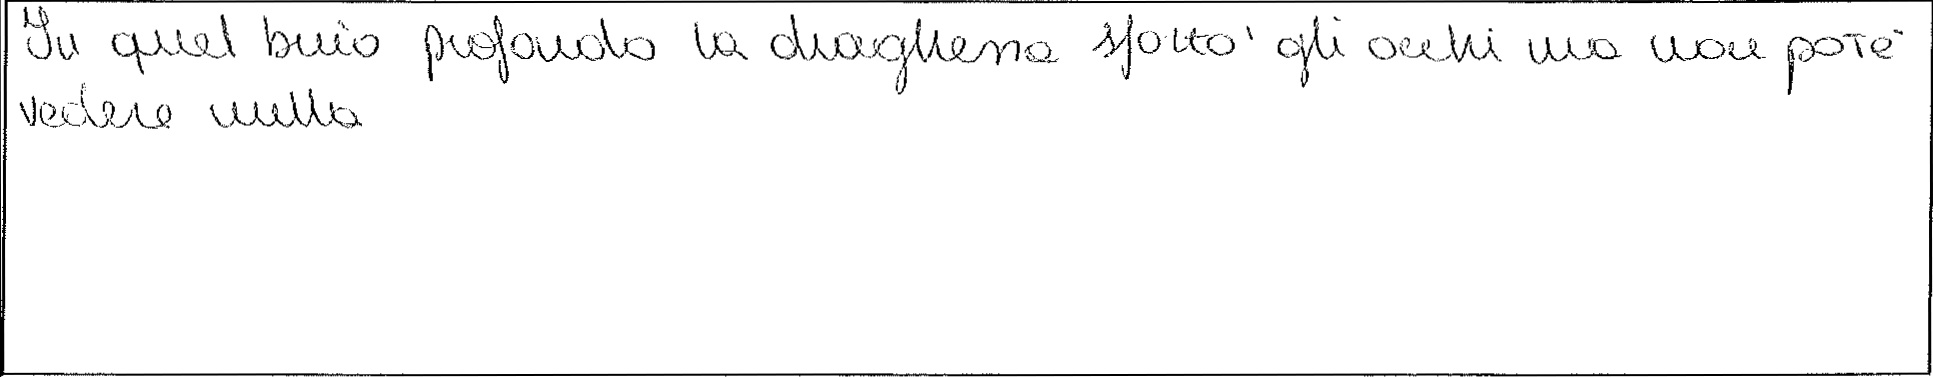 In quel buio profondo la draghessa sfottò gli occhi ma non poté
vedere nulla